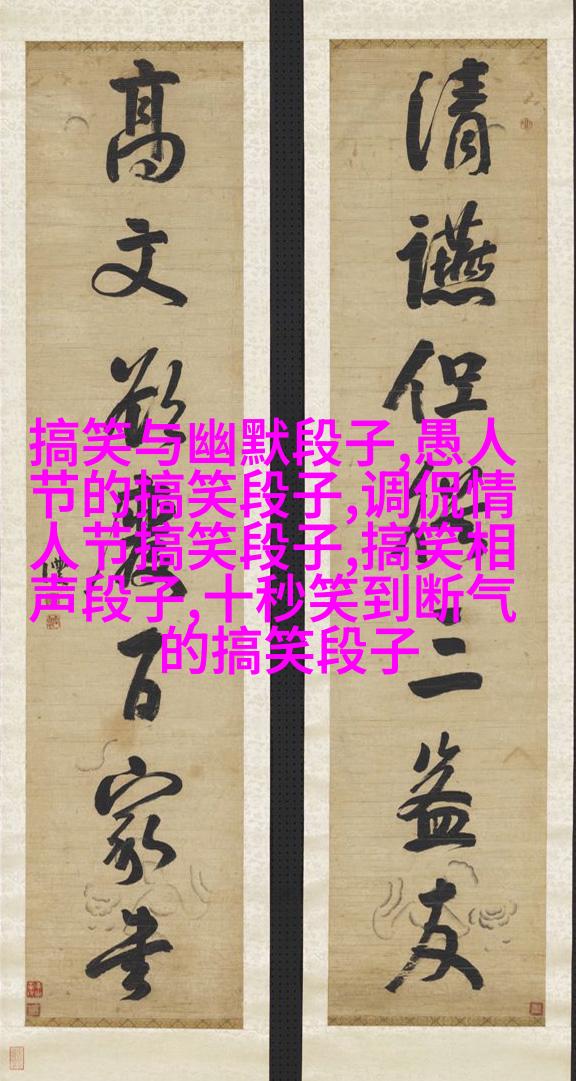 清讌但三益友
高文欲百家書
搞笑与幽默段子,愚人
节的搞笑段子,调侃情
人节搞笑段子,搞笑相
声段子,十秒笑到断气
的搞笑段子